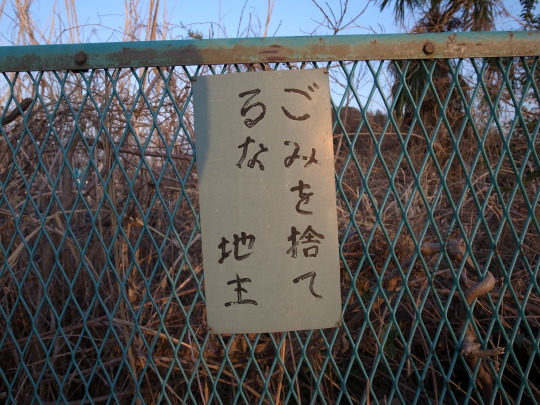 ごみを捨て
るな
地主